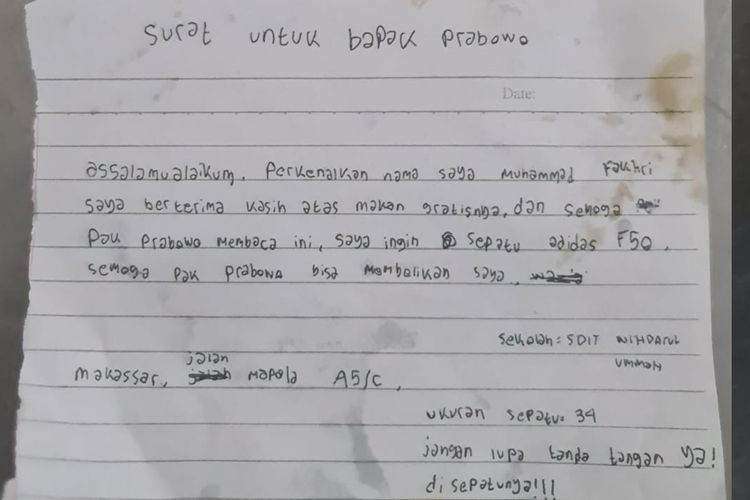 Surat untuk bapak Prabowo
Date:
assalamualaikum. Perkenalkan nama saya Muhammad Fakhri
saya berterima kasih atas makan gratisnya, dan semoga
Pak Prabowo membaca ini, saya ingin sepatu adidas F50.
semoga pak prabowo bisa membelikan saya.
sekolah = SDIT WIHDATUL
UMMAH
jalan
makassar, mapala A5/C,
ukuran sepatu = 34
jangan lupa tanda tangan ya!
di sepatunya!!!